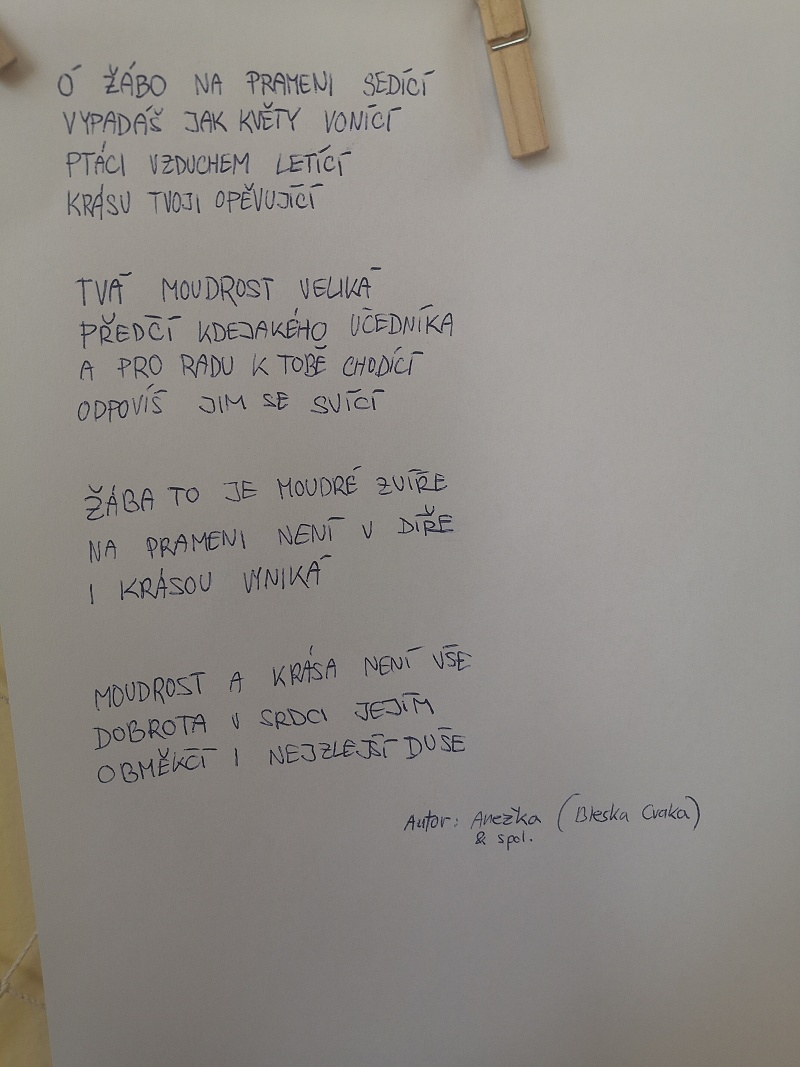 Ó ŽÁBO NA PRAMENI SEDÍCÍ
VYPADÁŠ JAK KVĚTY VONÍCÍ
PTÁCI VZDUCHEM LETÍCÍ
KRÁSU TVOJI OPĚVUJÍCÍ
TVÁ MOUDROST VELIKÁ
PŘEDČÍ KDEJAKÉHO UČEDNÍKA
A PRO RADU K TOBĚ CHODÍCÍ
ODPOVÍŠ JIM SE SVÍCÍ
ŽÁBA TO JE MOUDRÉ ZVÍŘE
NA PRAMENI NENÍ V DÍŘE
I KRÁSOU VYNIKÁ
MOUDROST A KRÁSA NENÍ VŠE
DOBROTA V SRDCI JEJÍM
OBMĚKČÍ I NEJZLEJŠÍ DUŠE
Autor: Anežka (Bleska Cvaka)
& spol.